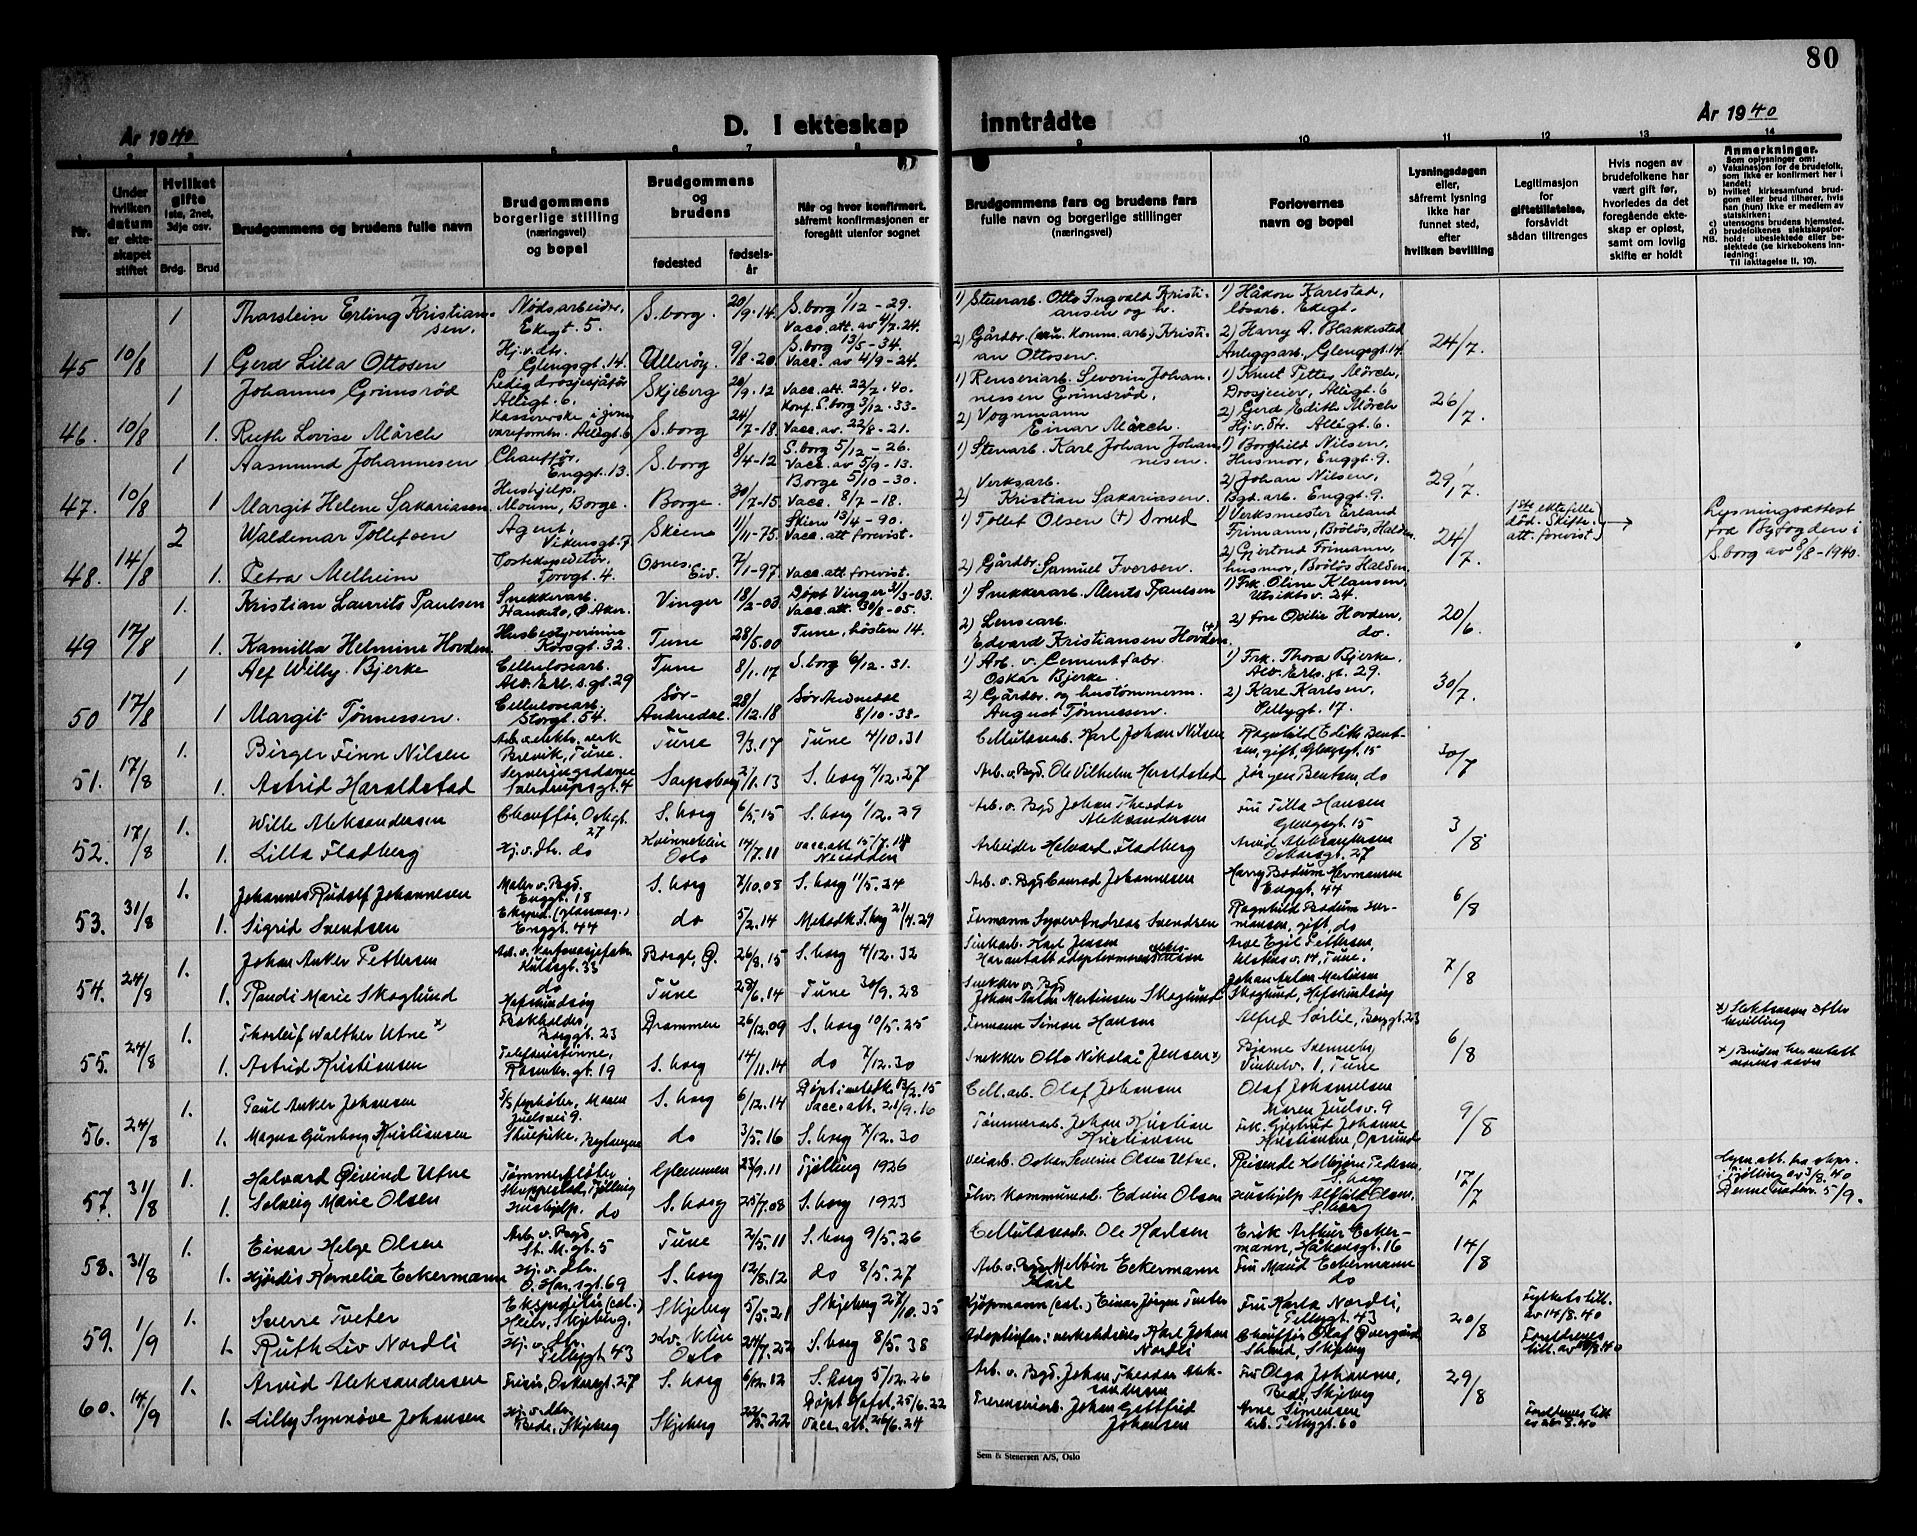 80
År 1940
D. I ekteskap inntrådte
År 1940
1 2 3 4 5 6 7 8 9 10 11 12 13 14
Nr.
Under hvilken datum er ekteskapet stiftet
Hvilket gifte 1ste, 2net, 3dje osv.
Brdg. Brud
Brudgommens og brudens fulle navn
Brudgommens borgerlige stilling (næringsvei) og bopel
Brudgommens og brudens
fødested fødselsår
Når og hvor konfirmert, såfremt konfirmasjonen er foregått utenfor sognet
Brudgommens fars og brudens fars fulle navn og borgerlige stillinger (næringsvei)
Forlovernes navn og bopel
Lysningsdagen eller, såfremt lysning ikke har funnet sted, efter hvilken bevilling
Legitimasjon for giftetillatelse, forsåvidt sådan tiltrenges
Hvis nogen av brudefolkene har vært gift før, hvorledes da det foregående ekteskap er opløst, samt om lovlig skifte er holdt
Anmerkninger.
Som oplysninger om:
a) Vaksinasjon for de brudefolk, som ikke er konfirmert her i landet;
b) hvilket kirkesamfund brudgom eller brud tilhører, hvis han (hun) ikke er medlem av statskirken;
c) utensogns brudens hjemsted.
d) brudefolkenes slektskapsforhold: ubeslektede eller beslektede (se kirkebokens innledning:
NB. Til iakttagelse II, 10).
1 Tharslein Erling Kristiansen. Nødsarbeider, Ekegt. 5. S.borg. 20/9-14 S.borg 1/12-29. Vacc. att. av 4/7.24. 1) Stuerarb. Otto Ingvald Kristiansen og h. 1) Håkon Karlstad, løsarb. Ekegt.
45 10/8 1 Gerd Lilla Ottosen Hj.v.dtr. Glengsgt. 14. Ullerøy. 9/8-20 S.borg 13/5-34. Vacc. av 4/9-24. 2) Gårdbr. Kristian Ottosen. 2) Harry A. Blakkestad Anleggsarb., Glengsgt. 14. 24/7.
1 Johannes Grimsrød Ledig drosjesjåfør Alligt. 6. Skjeberg 20/9.12 Vacc. att. 22/2.40. Konf. S.borg 3/12.33- 1) Renseriarb. Severin Johannessen Grimsrød. 1) Knut Petter Mörch, Drosjeeier, Alligt. 6
46. 10/8 1. Ruth Lovise Mörch Alligt. 6 S.borg 24/7-18. Vacc. av. 22/8-21. 2) Vognmann Einar Mörch. 2) Gerd Edith Mörch Hj.v.dtr. Alligt. 6. 26/7.
1 Aasmund Johannesen Chauffør, Enggt. 13. S.borg 8/4-12 S.borg 5/12-26. Vacc. av 5/9-13. 1) Stenarb. Karl Johan Johannesen. 1) Borghild Nilsen, Husmor, Enggt. 9.
47. 10/8 1 Margit Helene Sakariasen Hushjelp, Moum, Borge. Borge. 30/7-15. Borge 5/10-30. Vacc. 8/7-18. 2) Verksarb. Kristian Sakariassen. 2) Johan Nilsen, Bgd.arb. Enggt. 9. 29/7.
2 Waldemar Tollefsen Agent, Vikensgt. 7 Skien 1/11-75. Skien 13/4-90. Vacc. att. forevist. 1) Tollef Olsen (+) Smed 1) Verksmester Erland Frimann, Bröløs, Halden
48. 14/8 1. Petra Melheim Postekspeditør, Torvgt. 4. 7/1-97 Vacc. att forevist. 2) Gårdbr. Samuel Iversen. 2) Gjertrud Frimann, husmor, Bröløs Halden. 24/7. 1ste ektefelle død. Skifteatt. forevist. Lysningsattest fra Byfogden i S.borg av 8/8-1940.
1. Kristian Laurits Paulsen Snekkerarb. Vinger 18/2-03 Døpt Vinger 31/3-03. Vacc. att. 30/8-05. 1) Snekkerarb. Ments Paulsen 1) Frk. Oline Klausen, Utsiktsv. 24.
49 17/8 1. Kamilla Helmine Hovden Husbestyrerinne Korsgt. 32. Tune 28/5.00 Tune, høsten 14. 2) Lensearb. Edvard Kristiansen Hovden. (+) 2) fru Osilie Hovden, do. 20/6
1 Alf Willy Bjerke Cellulosearb. Alv. Erl. s.gt. 29 Tune 8/1.17 S.borg 6/12.31. 1) Arb. v. Cementfabr. Oskar Bjerke. 1) Frk. Thora Bjerke. Alv. Erls. gt. 29.
50 17/8 1 Margit Tönnessen. Cellulosearb. Storgt. 54. Sør-Audnedal 28/12.18 Sør Audnedal 8/10-33- 2) Gårdbr. og hustömmerm. August Tönnessen. 2) Karl Karlsen, Pellygt. 17. 30/7.
1. Birger Finn Nilsen Brevik, Tune. Tune 9/3.17 Tune 4/10.31 Cellulosearb. Karl Johan Nilsen Ragnhild Edith Bentsen, gift, Glengsgt. 15
51. 17/8 1. Astrid Haraldstad Sverdrupsgt. 4 Sarpsborg 2/1.13 S. borg 4/12.27 Arb. v. Bgd. Ole Vilhelm Haraldsted Jørgen Bentsen, do 30/7
1. Wille Aleksandersen Chauffør, Osk.gt. 27 S. borg 6/5.15 S. borg 1/12.29 Arb. v. Bgd Johan Theodor Aleksandersen Fru Tilla Hansen Glengsgt. 15
52. 17/8 1. Lilla Fladberg Hj.v.dtr. do Kvinneklin Oslo 14/7.11 vacc. att 15/7.14 Arbeider Halvard Fladberg Arvid Aleksandersen Oskarsgt. 27 3/8
1. Johannes Rudolf Johannesen Maler v. Bgd. Enggt. 18 S. borg 7/10.08 S. borg 11/5.24 Arb. v. Bgd Conrad Johannesen Harry Bodum Hermansen Enggt. 44
53. 31/8 1. Sigrid Svendsen Enggt. 44 do 5/2.14 Metodk. S.borg 21/4.29 Formann Syver Andreas Svendsen Ragnhild Bodum Hermansen, gift, do 6/8
1. Johan Anker Pettersen Borge, Ø. 26/3.15 S. borg 4/12.32 Karl Jensen Arve Egil Pettersen, Tune.
54. 24/8 1. Randi Marie Skoglund do Hafslundsøy Tune 28/6.14 Tune 30/9.28 Snekker v. Bgd Johan Anton Martinsen Skoglund Johan Anton Martinsen Skoglund, Hafslundsøy 7/8
1. Thorleif Walther Utne x) Bokholder, Borggt. 23 Drammen 26/12.09 S. borg 10/5.25 Formann Simon Hansen Alfred Sørlie, Borggt. 23 x) Slektsnavn etter bevilling
55. 24/8 1. Astrid Kristiansen Telefonistinne, Rosenkr.gt. 19 S. borg 14/11.14 do 7/12.30 Snekker Otto Nikolai Jensen x) Bjarne 1, Tune 6/8 x) Bruden har antatt morens navn
1. Paul Anker Johansen Maren Juelsvei 9. S. borg 6/12.14 Døpt i metodk. 13/2.15 Vacc. att. 21/9.16 Cell. arb. Olaf Johansen Olaf Johannesen Maren Juelsv. 9
56. 24/8 1. Magna Gunborg Kristiansen do 3/5.16 S. borg 7/12.30 Tømmerarb. Johan Kristian Kristiansen Frk. Gjertrud Johanne Kristiansen, Opsund 9/8
1. Halvard Øivind Utne Tømmerfløter Tjølling Glemmen 23/9.11 Tjølling 1926 Veiarb. Oskar Severin Olsen Utne. Reisende Kolbjørn Pedersen, S. borg Lysn. att. fra sokpr. i Tjølling av 3/8.40
57. 31/8 1. Solveig Marie Olsen Hushjelp. do S. borg 25/7.08 S. borg 1923 Fhv. Kommunearb. Edvin Olsen Hushjelp Alfhild Olsen. S. borg 17/7 5/9.
1. Einar Helge Olsen Arb. v. Bgd St. M. gt. 5 Tune 2/5.11 S. borg 9/5.26 Cellulosearb. Ole Karlsen Erik Arthur Eckermann, Håkonsgt. 16
58. 31/8 1. Hjørdis Kornelia Eckermann Hj.v.dtr. O. Har. sgt. 69 S. borg 12/8.12 do 8/5.27 Arb. v. Bgd Karl Melbin Eckermann Fru Maud Eckermann do 14/8
1. Sverre Tveter Skjeberg. Skjeberg 5/5.21 Skjeberg 27/10.35 Kjøpmann (col.) Einar Jørgen Tveter Fru Karla Nordli, Pellygt. 43 Fylketstill. av 14/8.40
59. 1/9 1. Ruth Liv Nordli Hj.v.dtr. Pellygt. 43 Kv. klin Oslo 24/7.22 S. borg 8/5.38 Karl Johan Nordli Chauffør Olaf Overgård Strand, Skjeberg 20/8 Foreldrenes till. av
1. Arvid Aleksandersen Frisør, Oskarsgt. 27 S. borg 6/12.12 S. borg 5/12.26 Arb. v. Bgd. Johan Theodor Aleksandersen Fru Olga Johansen, Bede, Skjeberg
60. 14/9 1. Lilly Synnøve Johansen Hj.v.dtr. Bede, Skjeberg Skjeberg 22/5.22 Døpt Hafsl. 25/6.22 Vacc. att. 26/6.24 Johan Gottfrid Johansen Arne Simensen arb. Pellygt. 60 29/8 Foreldrenes till.
Sem & Stenersen A/S, Oslo